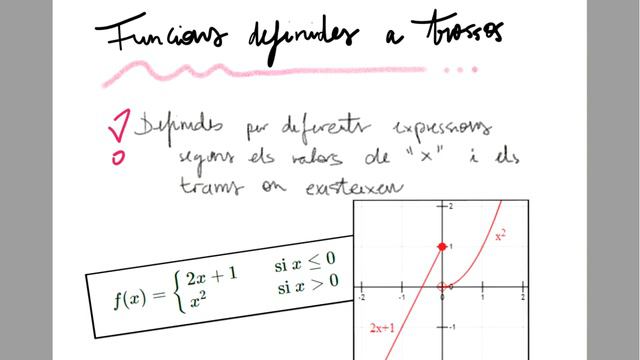 Funcions definides a trossos
Definides per diferents expressions
segons els valors de "x" i els
trams on existeixen
f(x) = { 2x + 1 si x ≤ 0
x² si x > 0
2
x²
1
-2 -1 0 0 1 2
2x+1
-1